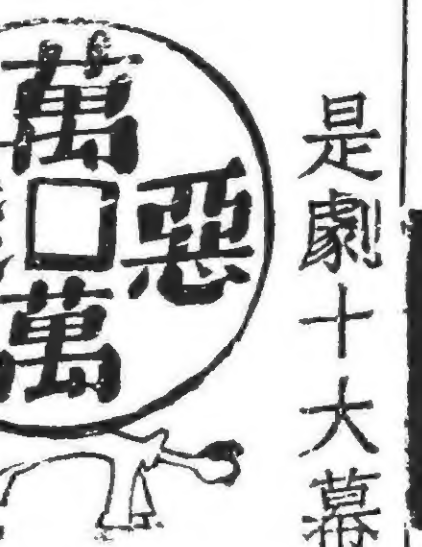 是劇十大幕
萬惡萬